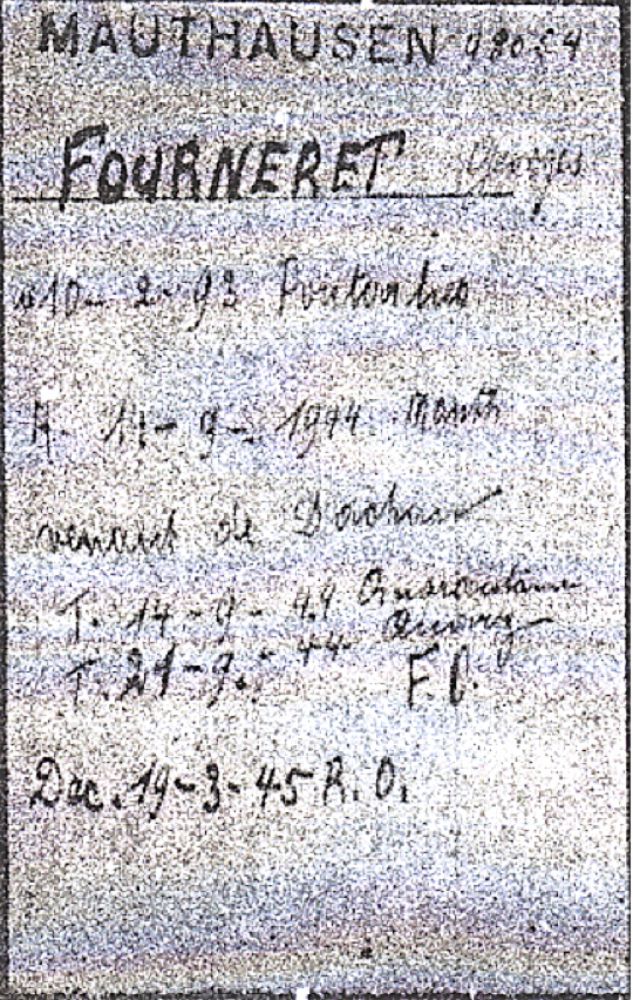 MAUTHAUSEN
FOURNERET Georges
10-2-93
A. 11-9-1944 Mauth
venant de Dachau
T. 14-9-44 Quarantaine
T. 21-9-44
Dec. 19-3-45 R.O.